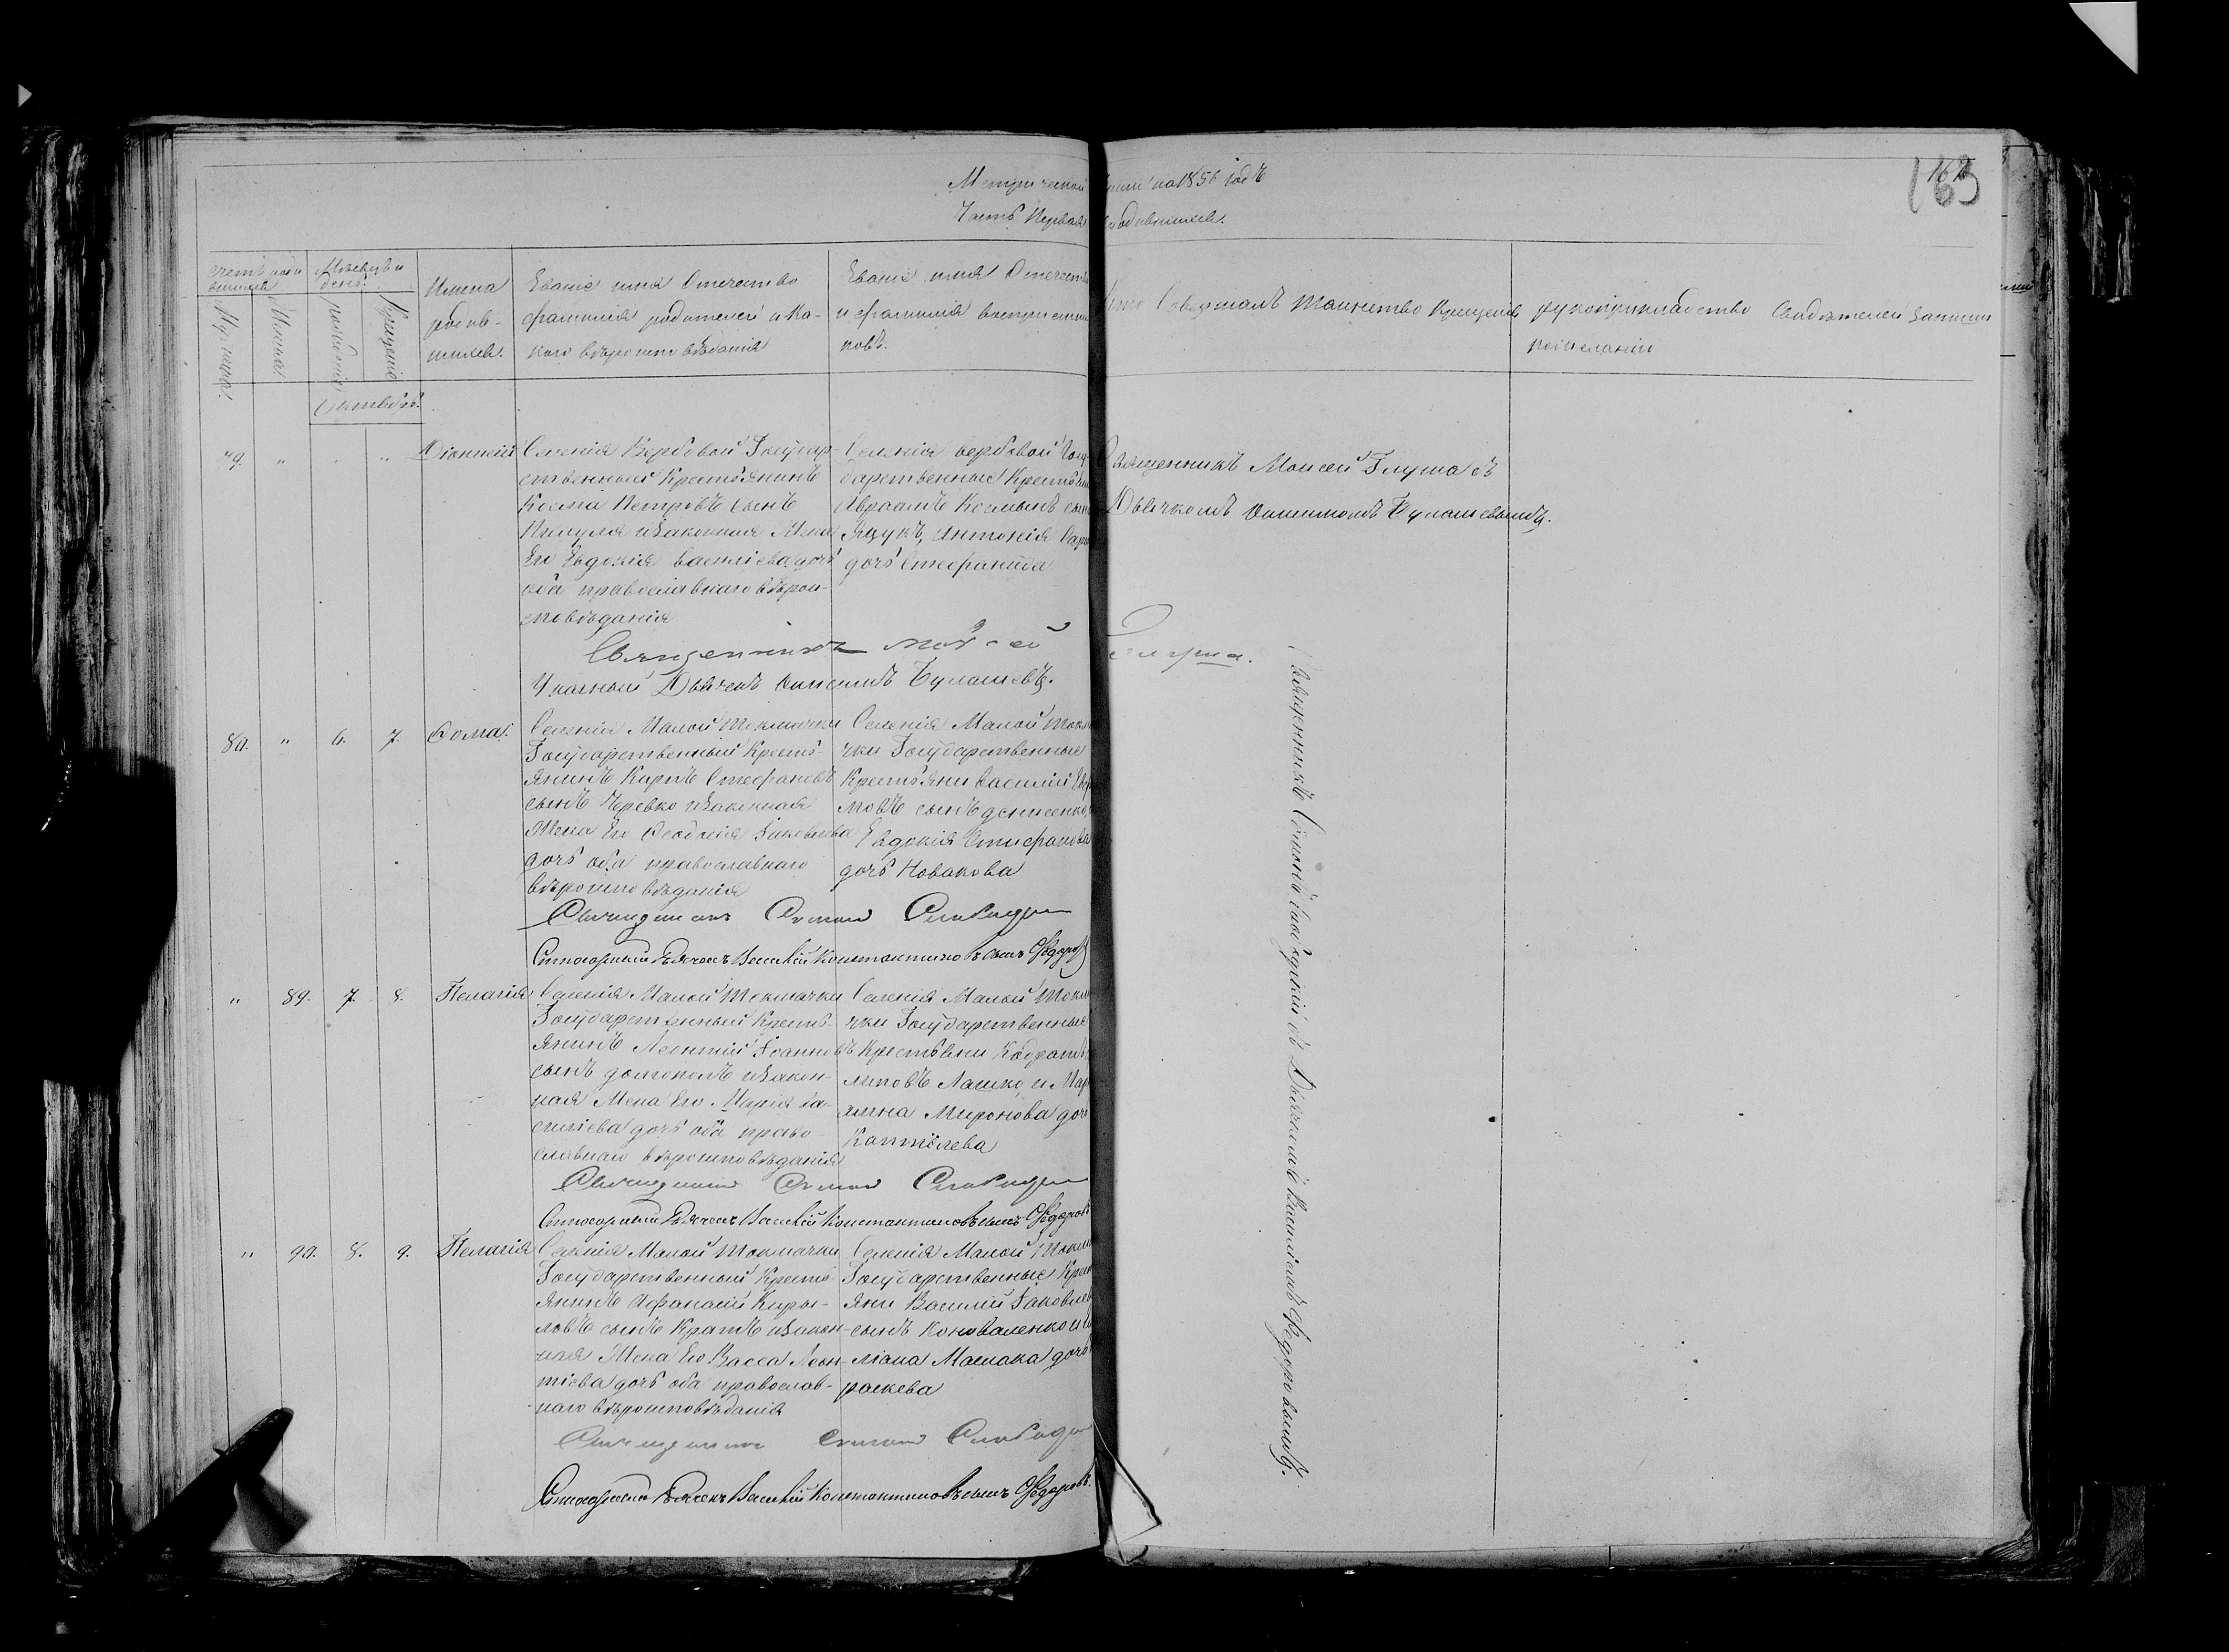 Метрической книги на 1856 годъ
Часть Первая о родившихся.
163
счетъ роди
вшихся
Мѣсяцъ и
день
Мужеска
Женска
рожденія
Крещенія
Имена
родив-
шихся.
Званіе имя Отчество
фамилія родителей и Ка-
кого вѣроисповѣданія
Званіе имя Отчество
и фамилія воспріемни
ковъ.
Кто Совершалъ Таинство Крещенія
рукоприкладство Свидѣтелей записи
по желанію
Октябрь.
79. " " "
Діонисій
Селенія Вербовой Государ-
ственный Крестьянинъ
Косма Петровъ сынъ
и Законная Жена
Его Евдокія Васильева дочь
оба православнаго вѣрои-
сповѣданія
Селенія Вербовой Госу-
дарственные Крестьяни
Авраамъ Космынъ сынъ
Яцукъ, Антонія
дочь
Священникъ Моисей Глушаcъ
Дьячкомъ Онисимомъ Булашевымъ.
Священникъ Моисей
Указный Дьячекъ Онисимъ Булашевъ.
80. " 6. 7. Фома.
Селенія Малой Токмачки
Государственный Кресть-
янинъ Карпъ Стефановъ
сынъ Черевко и Законная
Жена Его Феодосія Іаковлева
дочь оба православнаго
вѣроисповѣданія
Селенія Малой Токма
чки Государственные
Крестьяни Василій
мовъ сынъ Денисенко,
Евдокія Стефанова
дочь Новакова
Священникъ Симонъ Слабодскій
Стихарный Дьячекъ Василій Константиновъ сынъ Федоровъ
Священникъ Симонъ Слабодскій съ Дьячкомъ Василіемъ Федоровымъ.
" 89. 7. 8. Пелагія
Селенія Малой Токмачки
Государственный Кресть-
янинъ Леонтій Іоанновъ
сынъ Долгополъ и Закон-
ная Жена Его Марія Ва-
силіева дочь оба право-
славнаго вѣроисповѣданія
Селенія Малой Токма
чки Государственные
Крестьяни
липовъ Лашко, и Мар
Миронова дочь
Священникъ Симонъ Слабодскій
Стихарный Дьячекъ Василій Константиновъ сынъ Федоровъ
" 90. 8. 9. Пелагія
Селенія Малой Токмачки
Государственный Кресть-
янинъ Афанасій Кири-
ловъ сынъ и Закон-
ная Жена Его Васса Леон-
тіева дочь оба православ-
наго вѣроисповѣданія
Селенія Малой Токма
Государственные Крест
яни Василій Іаковлев
сынъ Коноваленко и

Священникъ Симонъ Слабодскій
Стихарный Дьячекъ Василій Константиновъ сынъ Федоровъ.